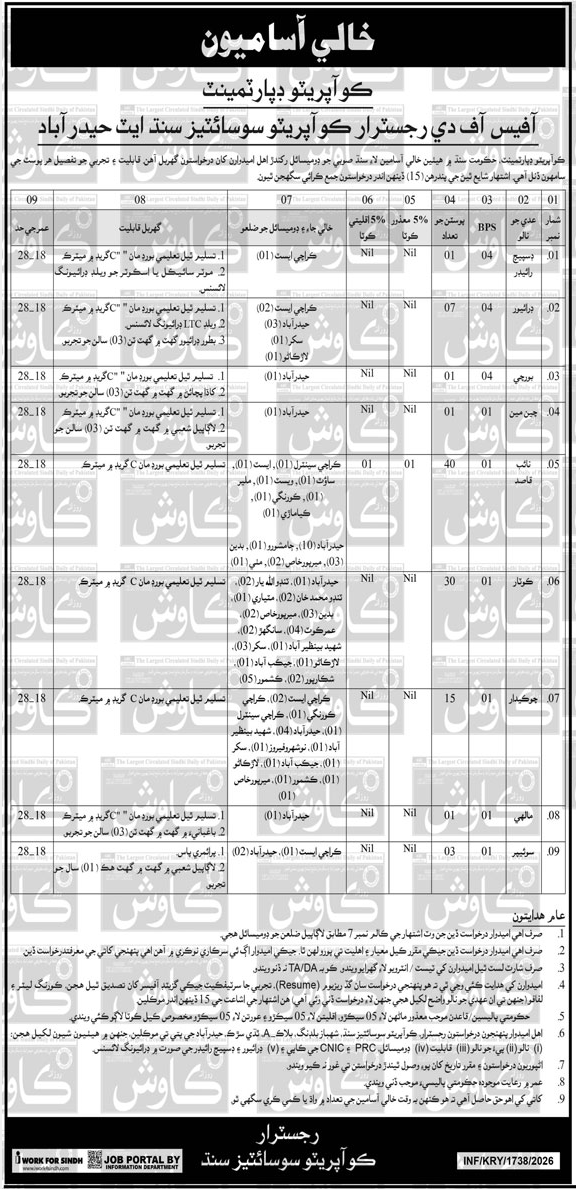 خالي آساميون
ڪوآپريٽو ڊپارٽمينٽ
آفيس آف دي رجسٽرار ڪوآپريٽو سوسائٽيز سنڌ ايٽ حيدرآباد
ڪوآپريٽو ڊپارٽمينٽ، حڪومت سنڌ ۾ هيٺين خالي آسامين لاءِ سنڌ صوبي جو ڊوميسائل رکندڙ اهل اميدوارن کان درخواستون گهربل آهن قابليت ۽ تجربي جو تفصيل هر پوسٽ جي
سامهون ڏنل آهي. اشتهار شايع ٿيڻ جي پندرهن (15) ڏينهن اندر درخواستون جمع ڪرائي سگهجن ٿيون.
01 02 03 04 05 06 07 08 09
شمار نمبر عهدي جو نالو BPS پوسٽن جو تعداد 5% معذور ڪوٽا 5% اقليتي ڪوٽا خالي جاءِ ۽ ڊوميسائل جو ضلعو گهربل قابليت عمر جي حد
01. ڊسپيچ رائيڊر 04 01 Nil Nil ڪراچي ايسٽ (01) 1. تسليم ٿيل تعليمي بورڊ مان "C" گريڊ ۾ ميٽرڪ. 18_28
2. موٽر سائيڪل يا اسڪوٽر جو ويلڊ ڊرائيونگ
لائسنس.
02. ڊرائيور 04 07 Nil Nil ڪراچي ايسٽ (02) 1. تسليم ٿيل تعليمي بورڊ مان "C" گريڊ ۾ ميٽرڪ. 18_28
حيدرآباد (03) 2. ويلڊ LTC ڊرائيونگ لائسنس.
سکر (01) 3. بطور ڊرائيور گهٽ ۾ گهٽ ٽن (03) سالن جو تجربو.
لاڙڪاڻو (01)
03. بورچي 04 01 Nil Nil حيدرآباد (01) 1. تسليم ٿيل تعليمي بورڊ مان "C" گريڊ ۾ ميٽرڪ. 18_28
2. کاڌا پچائڻ ۾ گهٽ ۾ گهٽ ٽن (03) سالن جو تجربو.
04. چين مين 01 01 Nil Nil حيدرآباد (01) 1. تسليم ٿيل تعليمي بورڊ مان "C" گريڊ ۾ ميٽرڪ. 18_28
2. لاڳاپيل شعبي ۾ گهٽ ۾ گهٽ ٽن (03) سالن جو
تجربو.
05. نائب قاصد 01 40 01 01 ڪراچي سينٽرل (01), ايسٽ (01), تسليم ٿيل تعليمي بورڊ مان C گريڊ ۾ ميٽرڪ. 18_28
سائوٿ (01), ويسٽ (01), ملير
(01), ڪورنگي (01),
ڪياماڙي (01)
حيدرآباد (10), ڄامشورو (01), بدين
(03), ميرپورخاص (02), مٺي (01)
06. ڪوٽار 01 30 Nil Nil حيدرآباد (01), ٽنڊو الله يار (02), تسليم ٿيل تعليمي بورڊ مان C گريڊ ۾ ميٽرڪ. 18_28
ٽنڊو محمد خان (02), مٽياري (01),
بدين (03), ميرپورخاص (02),
عمرڪوٽ (04), سانگهڙ (02),
شهيد بينظير آباد (01), سکر (03),
لاڙڪاڻو (01), جيڪب آباد (01),
شڪارپور (02), ڪشمور (05)
07. چوڪيدار 01 15 Nil Nil ڪراچي ايسٽ (02), ڪراچي تسليم ٿيل تعليمي بورڊ مان C گريڊ ۾ ميٽرڪ. 18_28
ڪورنگي (01), ڪراچي سينٽرل
(01), حيدرآباد (04), شهيد بينظير
آباد (01), نوشهروفيروز (01), سکر
(01), جيڪب آباد (01), لاڙڪاڻو
(01), ڪشمور (01), ميرپورخاص
(01)
08. مالهي 01 01 Nil Nil حيدرآباد (01) 1. تسليم ٿيل تعليمي بورڊ مان "C" گريڊ ۾ ميٽرڪ. 18_28
2. باغباني ۾ گهٽ ۾ گهٽ ٽن (03) سالن جو تجربو.
09. سوئيپر 01 03 Nil Nil ڪراچي ايسٽ (01), حيدرآباد (02) 1. پرائمري پاس. 18_28
2. لاڳاپيل شعبي ۾ گهٽ ۾ گهٽ هڪ (01) سال جو
تجربو.
عام هدايتون
1. صرف اهي اميدوار درخواست ڏين جن وٽ اشتهار جي ڪالم نمبر 7 مطابق لاڳاپيل ضلعن جو ڊوميسائل هجي.
2. صرف اهي اميدوار درخواست ڏين جيڪي مقرر ڪيل معيار ۽ اهليت تي پورو لهن ٿا. جيڪي اميدوار اڳ ئي سرڪاري نوڪري ۾ آهن اهي پنهنجي کاتي جي معرفت درخواست ڏين.
3. صرف شارٽ لسٽ ٿيل اميدوارن کي ٽيسٽ / انٽرويو لاءِ گهرايو ويندو ڪوبه TA/DA نه ڏنو ويندو.
4. اميدوارن کي هدايت ڪئي وڃي ٿي ته هو پنهنجي درخواست سان گڏ ريزيوم (Resume), تجربي جا سرٽيفڪيٽ جيڪي گزيٽيڊ آفيسر کان تصديق ٿيل هجن، ڪورنگ ليٽر ۽
لفافو (جنهن تي ان عهدي جو نالو واضح لکيل هجي جنهن لاءِ درخواست ڏني وئي آهي) هن اشتهار جي اشاعت جي 15 ڏينهن اندر موڪلين.
5. حڪومتي پاليسين/ قاعدن موجب معذور ماڻهن لاءِ 05 سيڪڙو، اقليتن لاءِ 05 سيڪڙو ۽ عورتن لاءِ 05 سيڪڙو مخصوص ڪيل ڪوٽا لاڳو ڪئي ويندي.
6. اهل اميدوار پنهنجون درخواستون رجسٽرار، ڪوآپريٽو سوسائٽيز سنڌ، شهباز بلڊنگ، بلاڪ_A، ٿڌي سڙڪ، حيدرآباد جي پتي تي موڪلين. جنهن ۾ هيٺيون شيون لکيل هجن:
(i) نالو (ii) پيءُ جو نالو (iii) قابليت (iv) ڊوميسائل، PRC ۽ CNIC جي ڪاپي ۽ (v) ڊرائيور ۽ ڊسپيچ رائيڊر جي صورت ۾ ڊرائيونگ لائسنس.
7. اڻپوريون درخواستون ۽ مقرر تاريخ کان پوءِ وصول ٿيندڙ درخواستن تي غور نه ڪيو ويندو.
8. عمر ۾ رعايت موجوده حڪومتي پاليسيءَ موجب ڏني ويندي.
9. کاتي کي اهو حق حاصل آهي ته هو ڪنهن به وقت خالي آسامين جي تعداد ۾ واڌ يا ڪمي ڪري سگهي ٿو.
رجسٽرار
ڪوآپريٽو سوسائٽيز سنڌ
I WORK FOR SINDH
www.iworkforsindh.com
JOB PORTAL BY
INFORMATION DEPARTMENT
INF/KRY/1738/2026